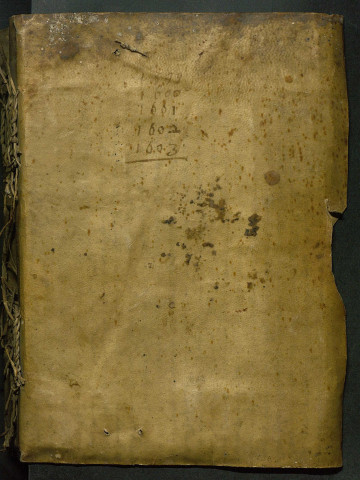 1600
1601
1602
1603